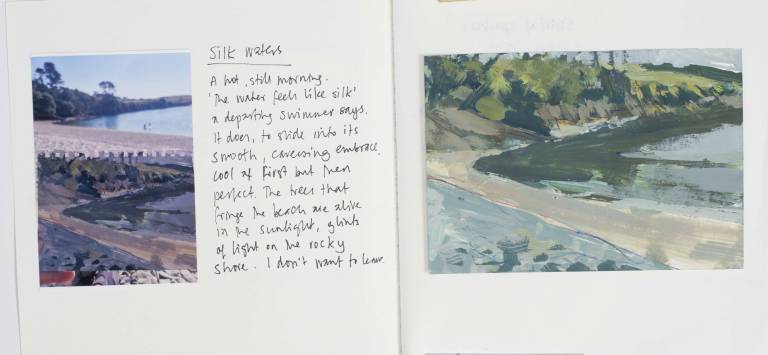 Silk waters
A hot, still morning.
'The water feels like silk'
a departing swimmer says.
It does, to slide into its
smooth, caressing embrace.
cool at first but then
perfect. The trees that
fringe the beach are alive
in the sunlight, glints
of light on the rocky
shore. I don't want to leave.